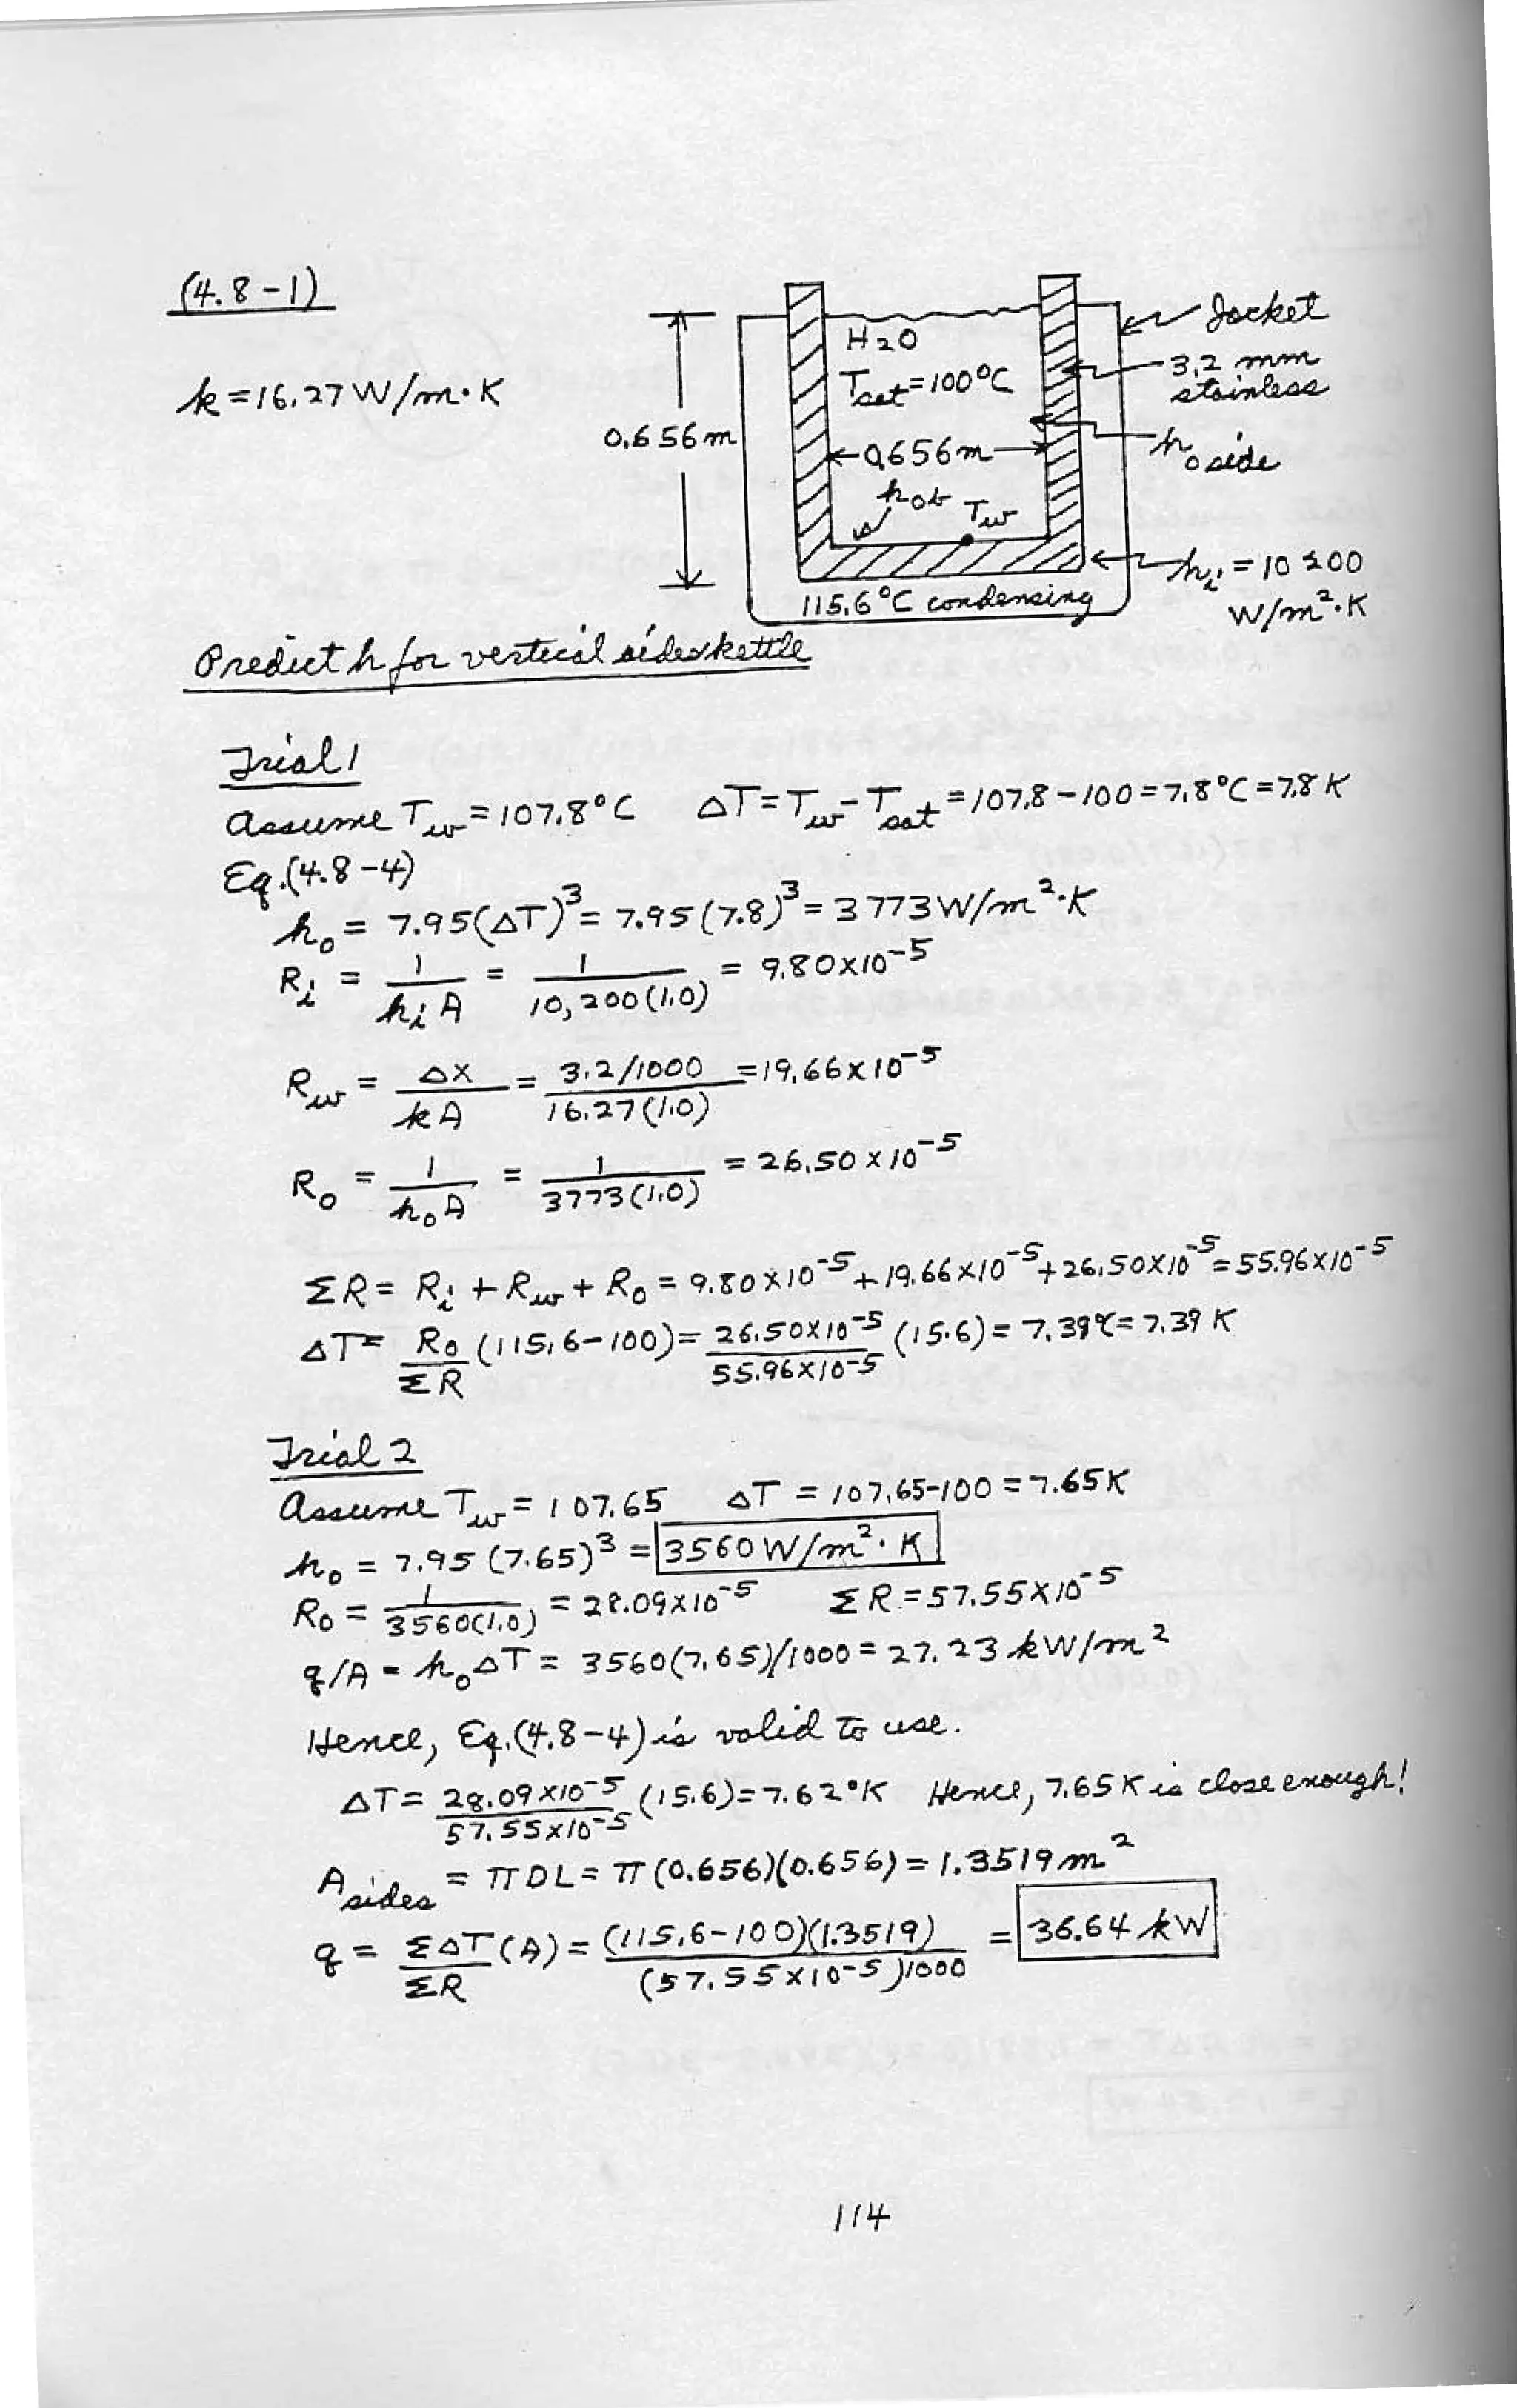 (4.8-1)
k = 16.27 W/m·K
0.656 m
H2O
Tsat = 100°C
0.656 m
hob Tw
115.6°C condensing
Jacket
3.2 mm
stainless
ho side
hi = 10 200
W/m²·K
Predict h for vertical sides kettle
Trial 1
Assume Tw = 107.8°C ΔT = Tw - Tsat = 107.8 - 100 = 7.8°C = 7.8 K
Eq.(4.8-4)
ho = 7.95(ΔT)³ = 7.95(7.8)³ = 3773 W/m²·K
Ri = 1/(hi A) = 1/(10,200(1.0)) = 9.80×10⁻⁵
Rw = Δx/(kA) = (3.2/1000)/(16.27(1.0)) = 19.66×10⁻⁵
Ro = 1/(ho A) = 1/(3773(1.0)) = 26.50×10⁻⁵
ΣR = Ri + Rw + Ro = 9.80×10⁻⁵ + 19.66×10⁻⁵ + 26.50×10⁻⁵ = 55.96×10⁻⁵
ΔT = Ro/ΣR (115.6-100) = 26.50×10⁻⁵/55.96×10⁻⁵ (15.6) = 7.39°C = 7.39 K
Trial 2
Assume Tw = 107.65 ΔT = 107.65-100 = 7.65K
ho = 7.95 (7.65)³ = 3560 W/m²·K
Ro = 1/(3560(1.0)) = 28.09×10⁻⁵ ΣR = 57.55×10⁻⁵
q/A = hoΔT = 3560(7.65)/1000 = 27.23 kW/m²
Hence, Eq.(4.8-4) is valid to use.
ΔT = 28.09×10⁻⁵/57.55×10⁻⁵ (15.6) = 7.62°K Hence, 7.65K is close enough!
Asides = πDL = π(0.656)(0.656) = 1.3519 m²
q = ΣΔT/ΣR (A) = (115.6-100)(1.3519)/((57.55×10⁻⁵)1000) = 36.64 kW
114